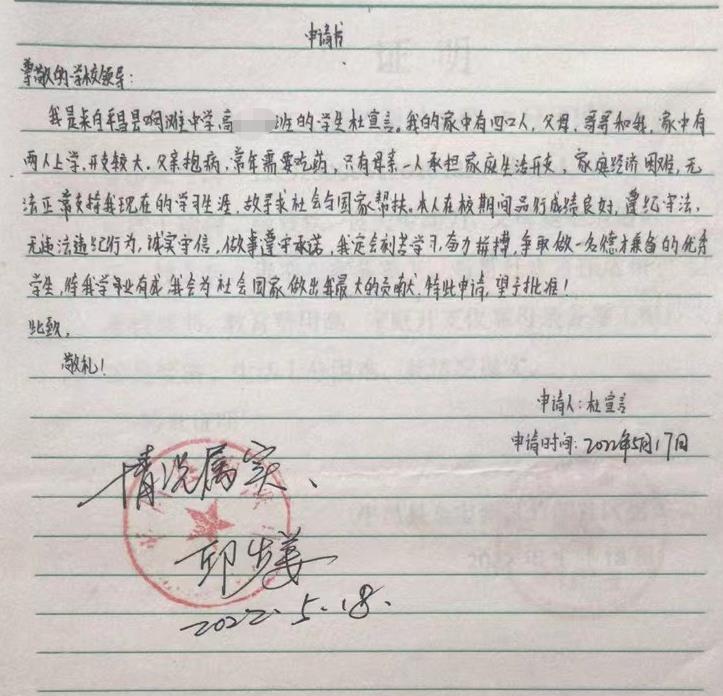 申请书
尊敬的学校领导：
我是来自平昌县响滩中学高 班的学生杜宣言。我的家中有四口人，父母，哥哥和我，家中有
两人上学，开支较大，父亲抱病，常年需要吃药，只有母亲一人承担家庭生活开支，家庭经济困难，无
法正常支持我现在的学习生涯，故寻求社会与国家帮扶。本人在校期间品行成绩良好，遵纪守法，
无违法违纪行为，诚实守信，做事遵守承诺，我定会刻苦学习，奋力拼搏，争取做一名德才兼备的优秀
学生，待我学业有成，我会为社会国家做出我最大的贡献，特此申请，望予批准！
此致，
敬礼！
申请人：杜宣言
申请时间：2022年5月17日
情况属实、
邱
2022.5.18.